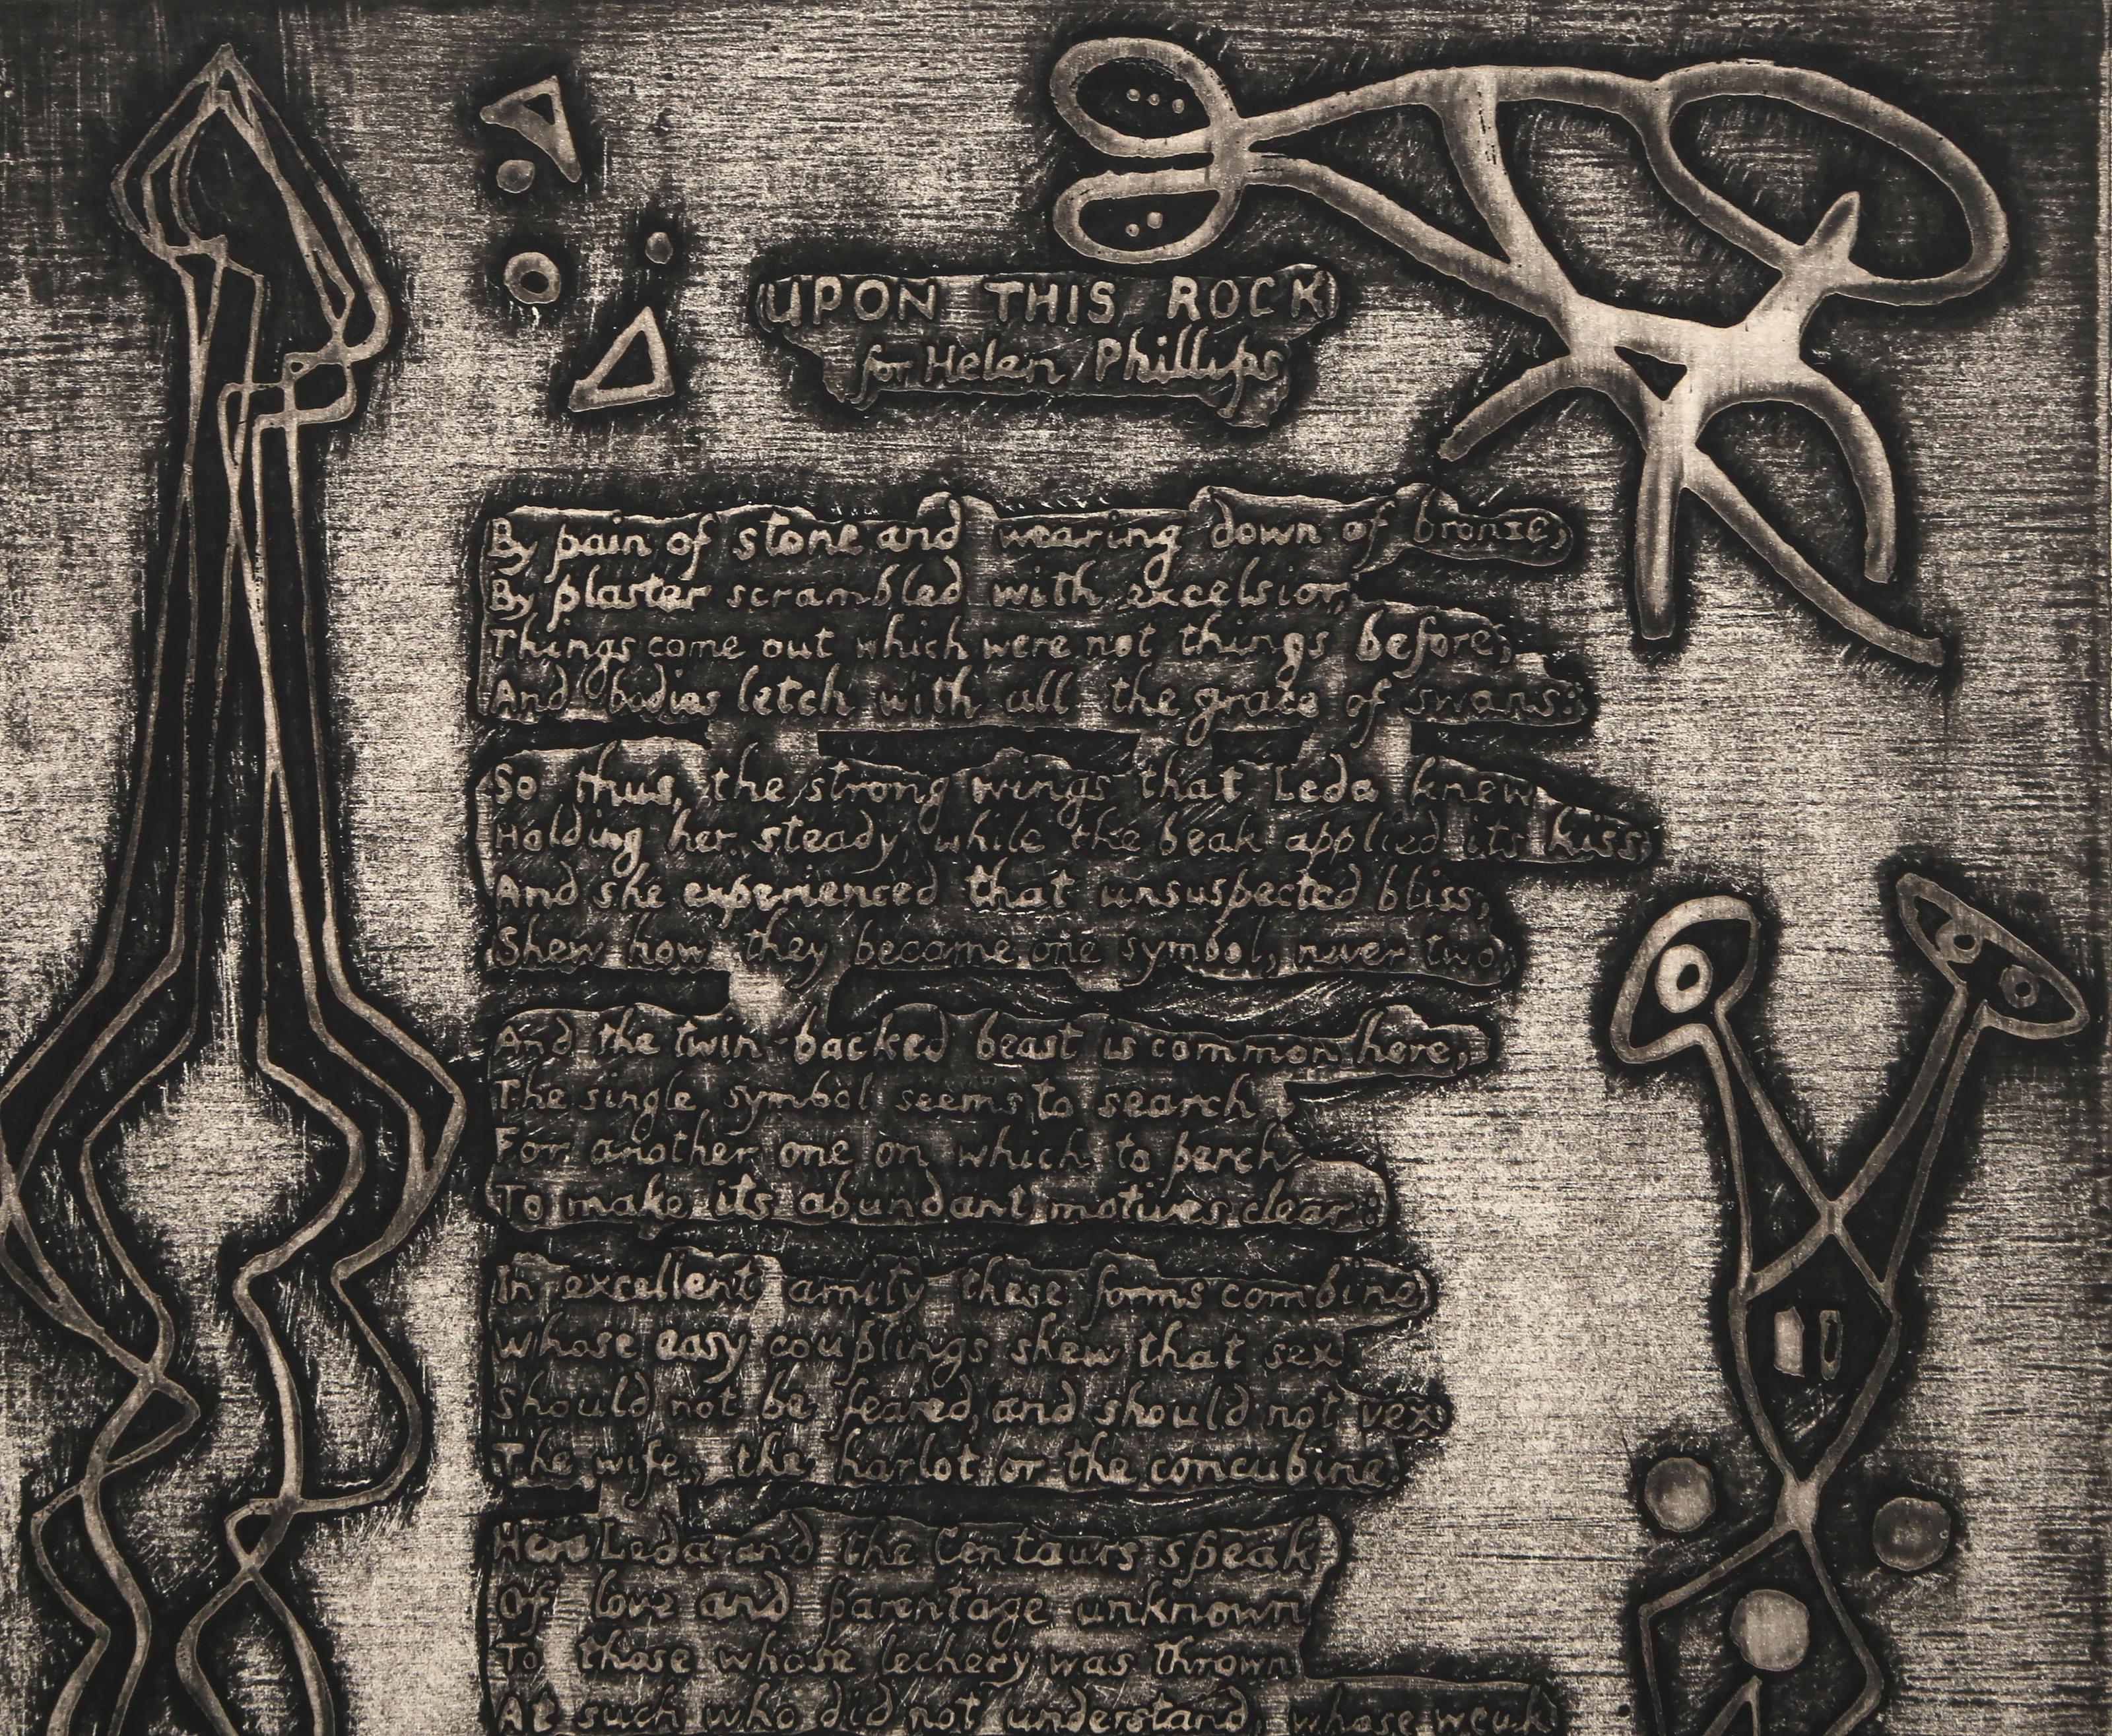 UPON THIS ROCK
for Helen Phillips
By pain of stone and wearing down of bronze,
By plaster scrambled with excelsior,
Things come out which were not things before,
And bodies letch with all the grace of swans:
So thus, the strong wings that Leda knew
Holding her steady, while the beak applied its kiss,
And she experienced that unsuspected bliss,
Shew how they became one symbol, never two,
And the twin-backed beast is common here,
The single symbol seems to search
For another one on which to perch
To make its abundant motives clear:
In excellent amity these forms combine
Whose easy couplings shew that sex
Should not be feared, and should not vex
The wife, the harlot or the concubine.
Here Leda and the Centaurs speak
Of love and parentage unknown
To those whose lechery was thrown
At such who did not understand, whose weak